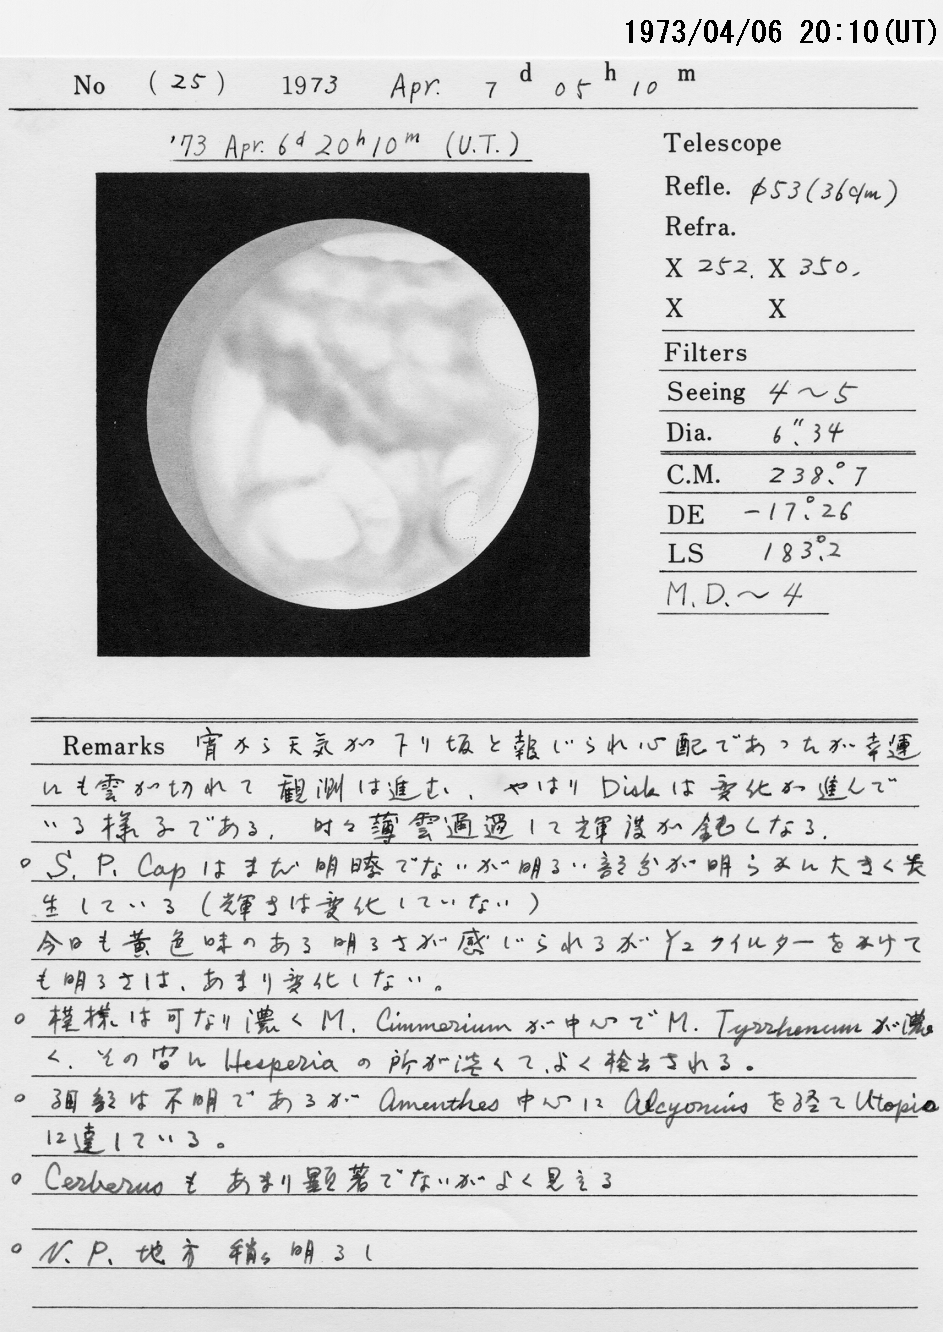 1973/04/06 20:10(UT)
No (25) 1973 Apr. 7 d 05 h 10 m
'73 Apr. 6d 20h10m (U.T.)
Telescope
Refle. φ53(36c/m)
Refra.
X 252. X 350.
X X
Filters
Seeing 4～5
Dia. 6".34
C.M. 238.°7
DE -17.°26
LS 183.°2
M.D.～4
Remarks 宵から天気が下り坂と報じられ心配であったが幸運
にも雲が切れて観測は進む、やはりDiskは変化が進んで
いる様子である。時々薄雲通過して輝度が鈍くなる。
○ S.P.Capはまだ明瞭でないが明るい部分が明らかに大きく
生している(輝きは変化していない)
今日も黄色味のある明るさが感じられるがY2フィルターをかけて
も明るさは、あまり変化しない。
○ 模様は可なり濃くM. Cimmeriumが中心でM. Tyrrhenumが濃
く、その間にHesperiaの所が淡くて、よく検出される。
○ 細部は不明であるがAmenthes中心にAlcyoniusを経てUtopia
に達している。
○ Cerberusもあまり顕著でないがよく見える
○ N.P.地方稍々明るし